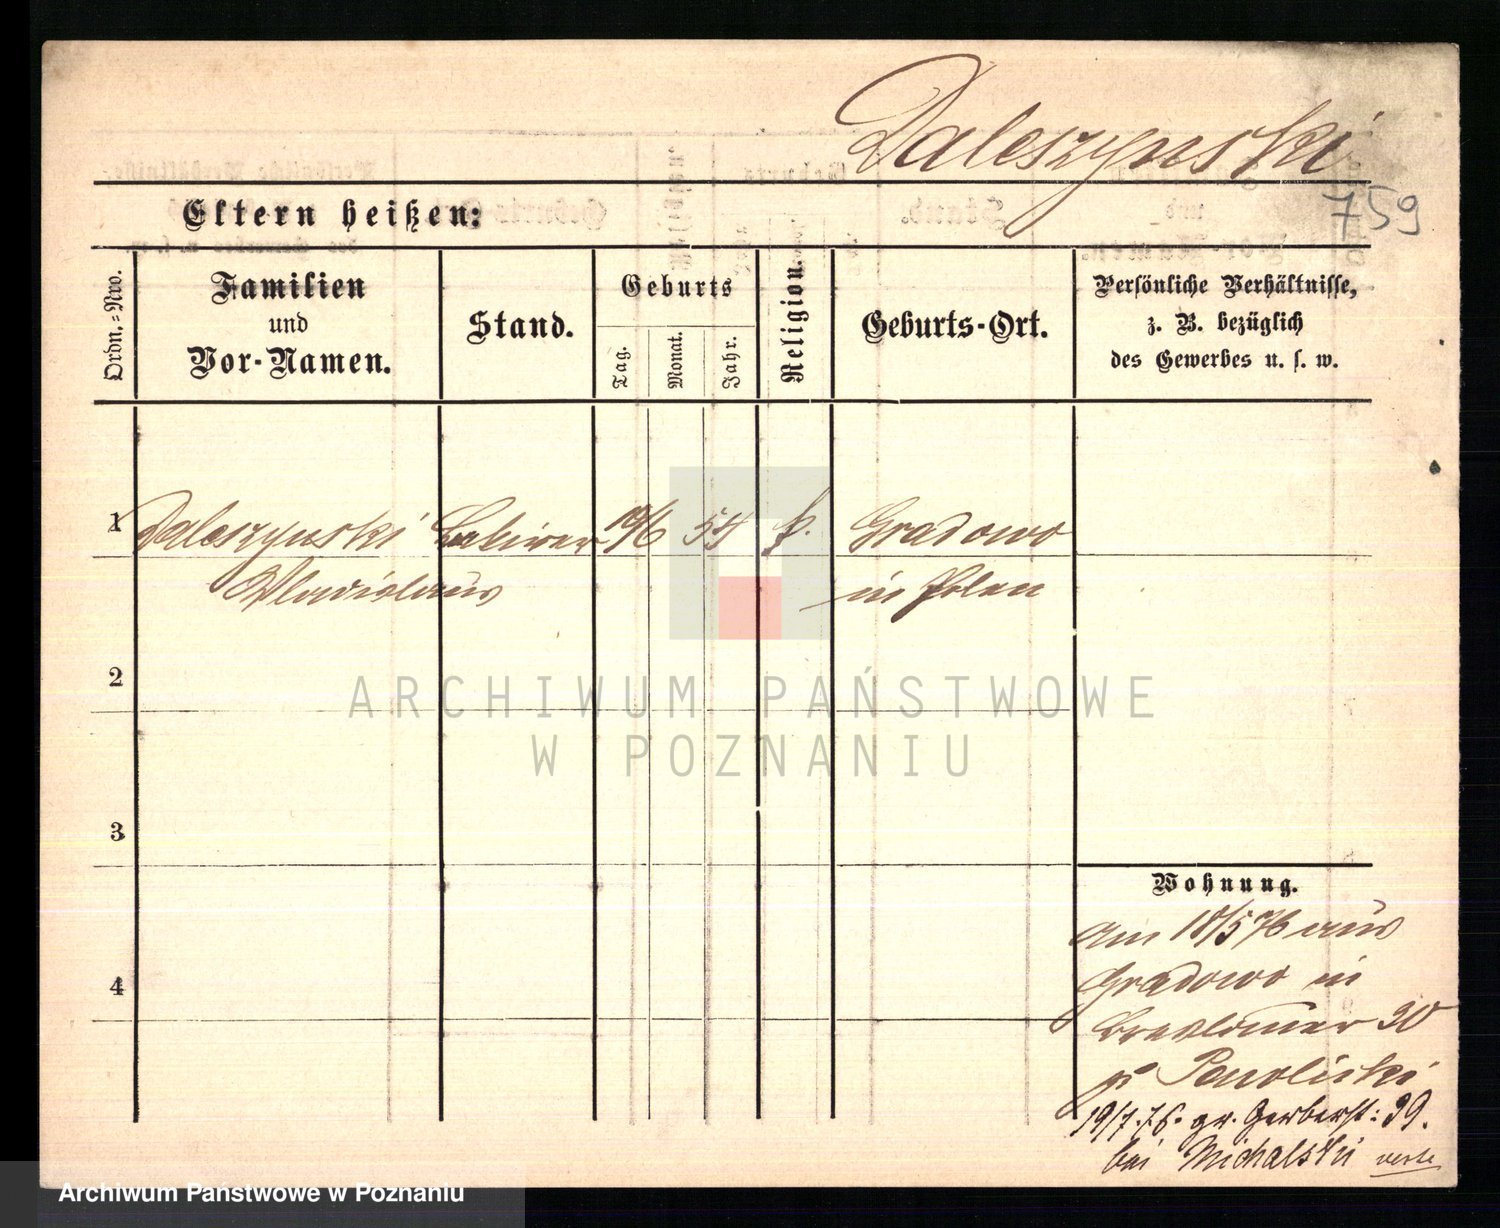 Daleszynski
759
Eltern heißen:
Ordn.=Nro.
Familien
und
Vor-Namen.
Stand.
Geburts
Tag.
Monat.
Jahr.
Religion.
Geburts-Ort.
Persönliche Verhältnisse,
z. B. bezüglich
des Gewerbes u. s. w.
1 Daleszynski 19/6 55 k. Gradowo
Wladislaus in Polen
2
ARCHIWUM PAŃSTWOWE
W POZNANIU
3
4
Wohnung.
am 18/5 76 aus
Gradowo in
Breslauer 30
19/7. 76. gr. Gerberst: 39.
bei Michalski verte
Archiwum Państwowe w Poznaniu